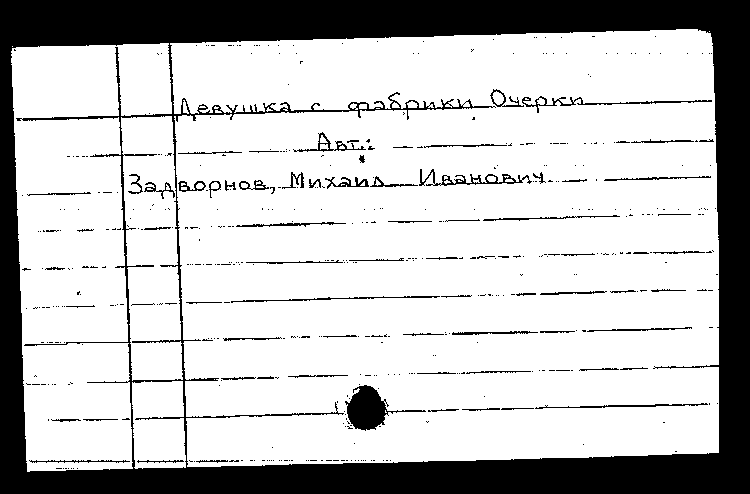 Девушка с фабрики Очерки
Авт.:
Задворнов, Михаил Иванович